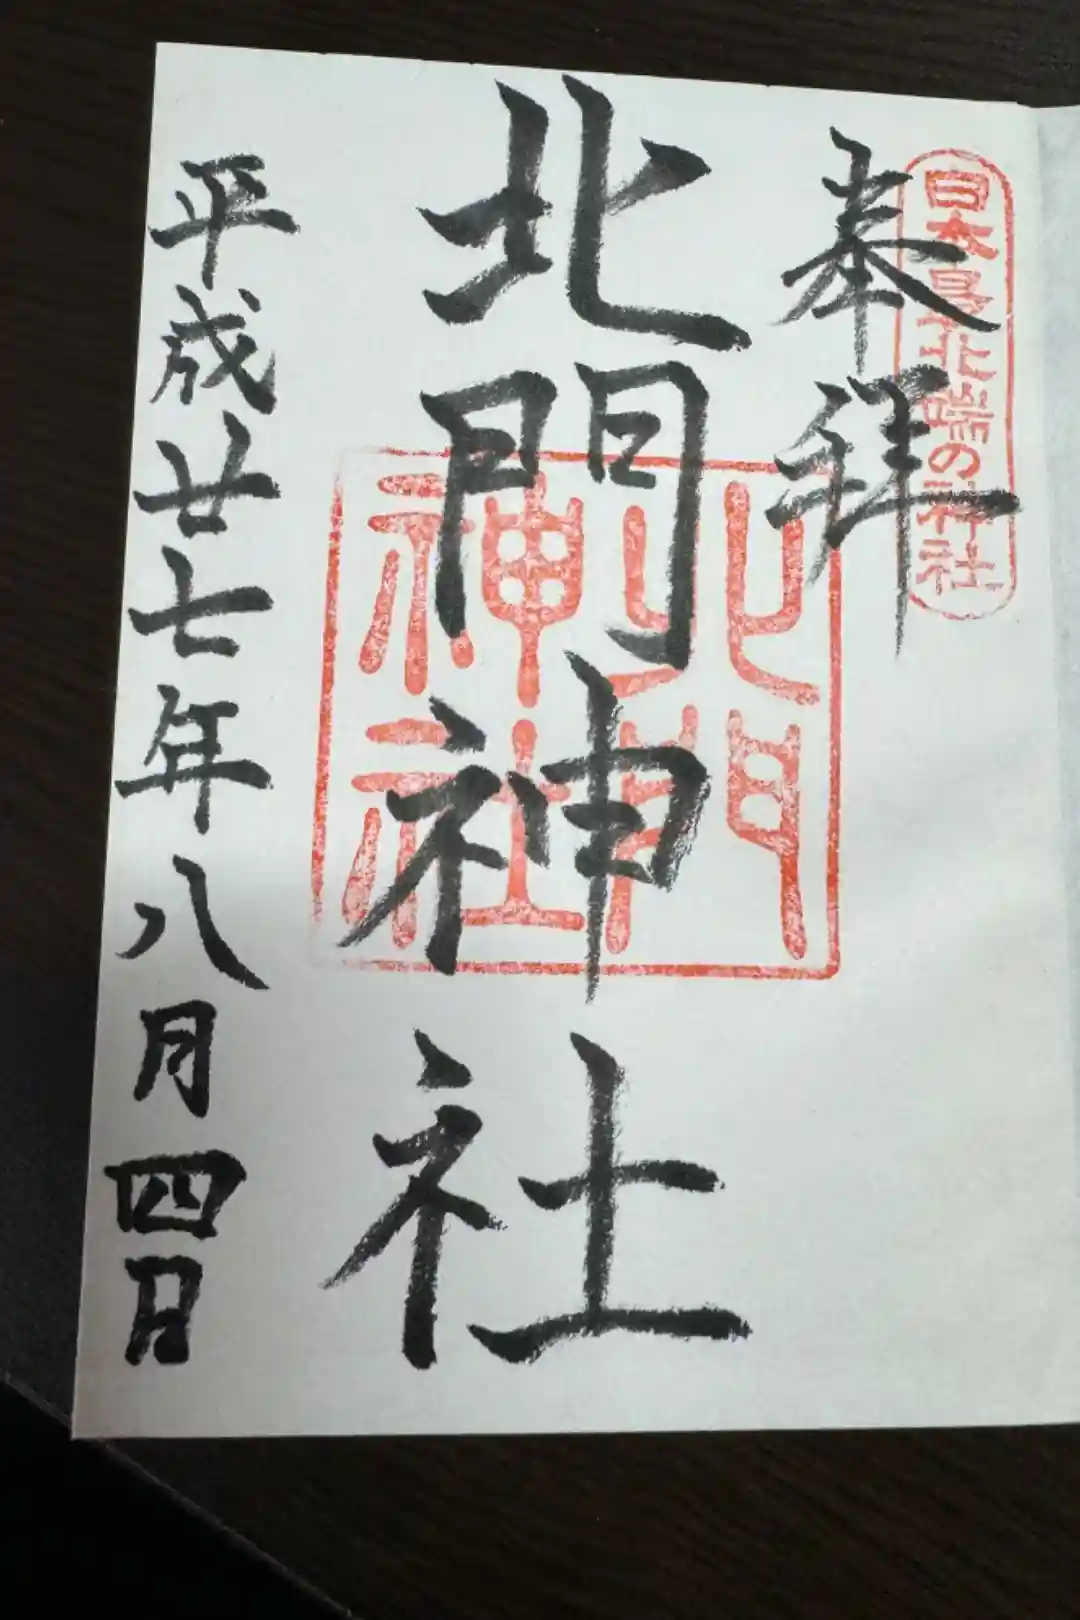 日本最北端の神社
奉拝
北門神社
北門神社
平成廿七年八月四日